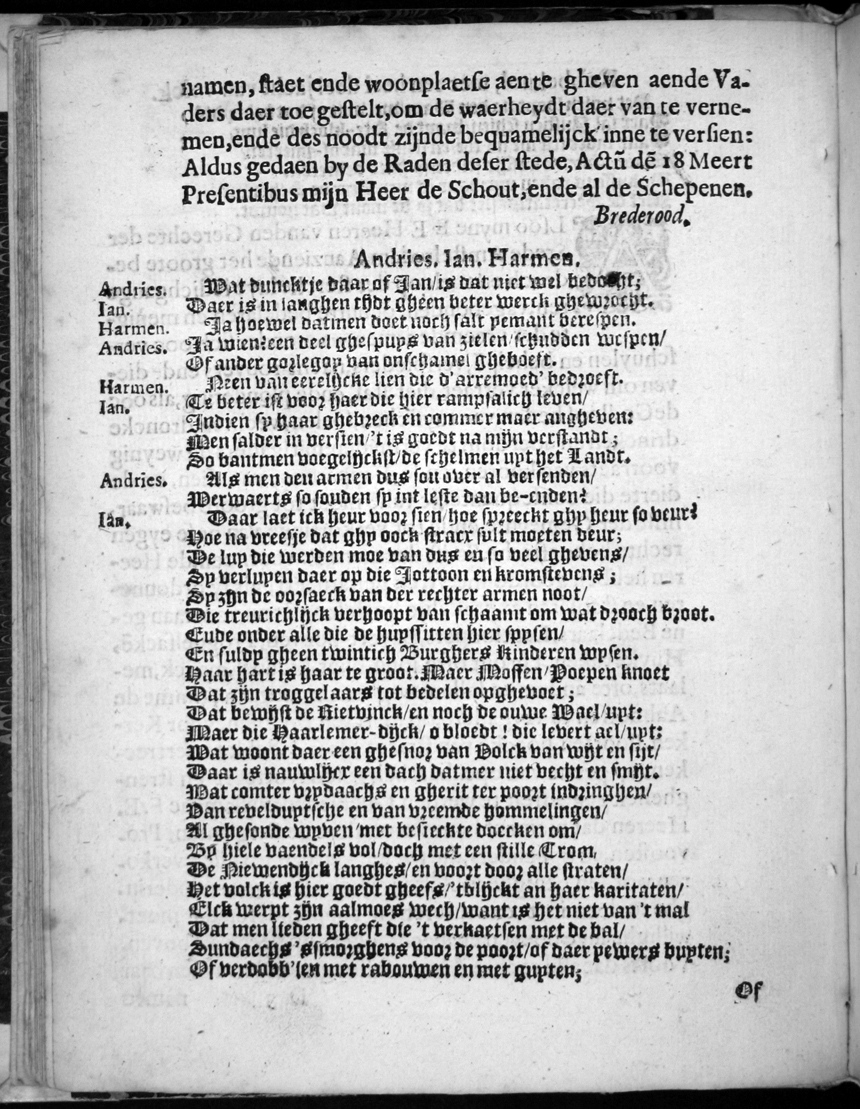 namen, ſtaet ende woonplaetſe aen te gheven aende Va-
ders daer toe geſtelt, om de waerheydt daer van te verne-
men, ende des noodt zijnde bequamelijck inne te verſien:
Aldus gedaen by de Raden deſer ſtede, Actū dē 18 Meert
Preſentibus mijn Heer de Schout, ende al de Schepenen.
Brederood.
Andries. Ian. Harmen.
Andries. Wat duncktje daar of Jan/ is dat niet wel bedocht;
Ian. Daer is in langhen tijdt gheen beter werck ghewrocht.
Harmen. Ja hoewel datmen doet noch ſalt yemant bereſpen.
Andries. Ja wien? een deel gheſpuys van zielen/ ſchudden weſpen/
Of ander gorlegoy van onſchamel gheboeft.
Harmen. Neen van eerelijcke lien die d'arremoed' bedroeft.
Ian. Te beter iſt voor haer die hier rampſalich leven/
Indien ſy haar ghebreck en commer maer angheven:
Men ſalder in verſien/ 't is goedt na mijn verſtandt;
So bantmen voegelijckſt/ de ſchelmen uyt het Landt.
Andries. Als men den armen dus ſou over al verſenden/
Werwaerts ſo ſouden ſy int leſte dan be-enden?
Ian. Daar laet ick heur voor ſien/ hoe ſpreeckt ghy heur ſo veur?
Hoe na vreesje dat ghy oock ſtracx ſult moeten deur;
De luy die werden moe van dus en ſo veel ghevens/
Sy verluyen daer op die Jottoon en kromſtevens;
Sy zijn de oorſaeck van der rechter armen noot/
Die treurichlijck verhoopt van ſchaamt om wat drooch broot.
Ende onder alle die de huysſitten hier ſpyſen/
En ſuldy gheen twintich Burghers Kinderen wyſen.
Haar hart is haar te groot. Maer Moffen/ Poepen knoet
Dat zijn troggelaars tot bedelen opghevoet;
Dat bewijſt de Rietvinck/ en noch de ouwe Wael/ uyt:
Maer die Haarlemer-dijck/ o bloedt! die levert ael/ uyt:
Wat woont daer een gheſnor van Volck van wijt en ſijt/
Daar is nauwlijcx een dach datmer niet vecht en ſmijt.
Wat comter vrydaachs en gherit ter poort indringhen/
Van revelduytſche en van vreemde hommelingen/
Al gheſonde wyven/ met beſieckte doecken om/
By hiele vaendels vol/ doch met een ſtille Trom,
De Niewendijck langhes/ en voort door alle ſtraten/
Het volck is hier goedt gheefs/ 'tblijckt an haer karitaten/
Elck werpt zijn aalmoes wech/ want is het niet van 't mal
Dat men lieden gheeft die 't verkaetſen met de bal/
Sundaechs 'sſmorghens voor de poort/ of daer yewers buyten;
Of verdobb'len met rabouwen en met guyten;
Of